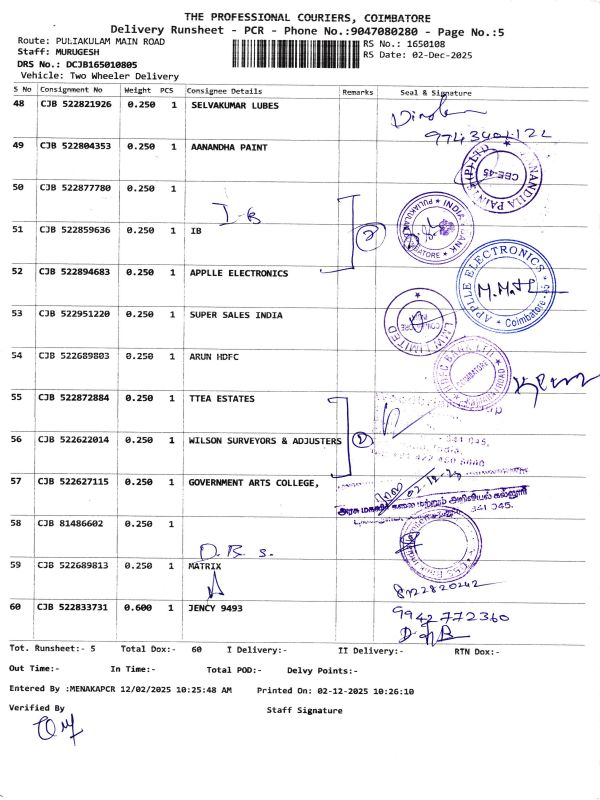 THE PROFESSIONAL COURIERS, COIMBATORE
Delivery Runsheet - PCR - Phone No.:9047080280 - Page No.:5
Route: PULIAKULAM MAIN ROAD RS No.: 1650108
Staff: MURUGESH RS Date: 02-Dec-2025
DRS No.: DCJB165010805
Vehicle: Two Wheeler Delivery
S No Consignment No Weight PCS Consignee Details Remarks Seal & Signature
48 CJB 522821926 0.250 1 SELVAKUMAR LUBES
49 CJB 522804353 0.250 1 AANANDHA PAINT
CBE-45
50 CJB 522877780 0.250 1
I B
51 CJB 522859636 0.250 1 IB
2
INDIAN BANK
52 CJB 522894683 0.250 1 APPLLE ELECTRONICS
APPLLE ELECTRONICS
Coimbatore
53 CJB 522951220 0.250 1 SUPER SALES INDIA
LIMITED
54 CJB 522689803 0.250 1 ARUN HDFC
COIMBATORE
55 CJB 522872884 0.250 1 TTEA ESTATES
56 CJB 522622014 0.250 1 WILSON SURVEYORS & ADJUSTERS
2
57 CJB 522627115 0.250 1 GOVERNMENT ARTS COLLEGE,
641 045.
58 CJB 81486602 0.250 1
D. B. S.
59 CJB 522689813 0.250 1 MATRIX
60 CJB 522833731 0.600 1 JENCY 9493
9942772360
Tot. Runsheet:- 5 Total Dox:- 60 I Delivery:- II Delivery:- RTN Dox:-
Out Time:- In Time:- Total POD:- Delvy Points:-
Entered By :MENAKAPCR 12/02/2025 10:25:48 AM Printed On: 02-12-2025 10:26:10
Verified By Staff Signature